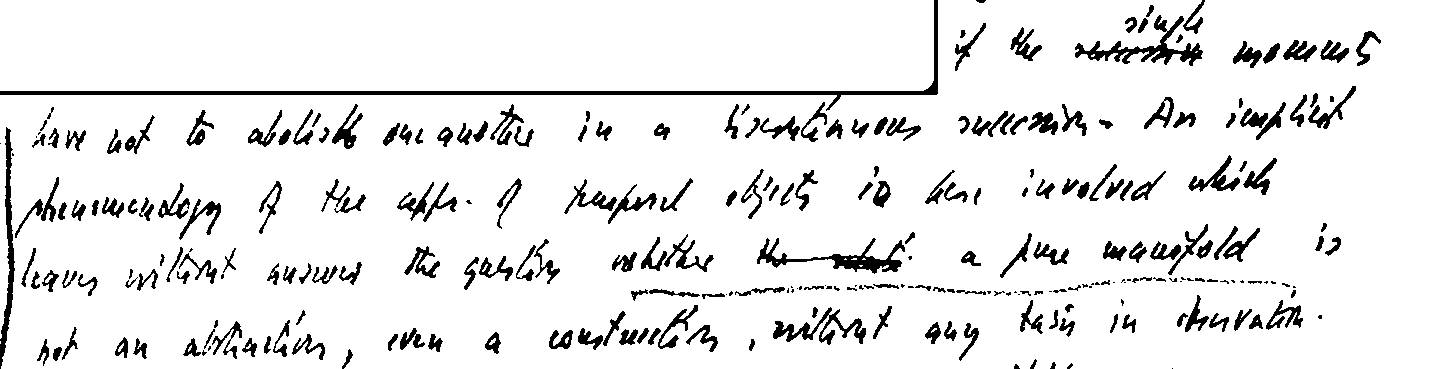 if the single moments
have not to abolish one another in a discontinuous succession. An implicit
phenomenology of the appr. of temporal objects is here involved which
leaves without answer the question whether the a pure manifold is
not an abstraction, even a construction, without any basis in observation.